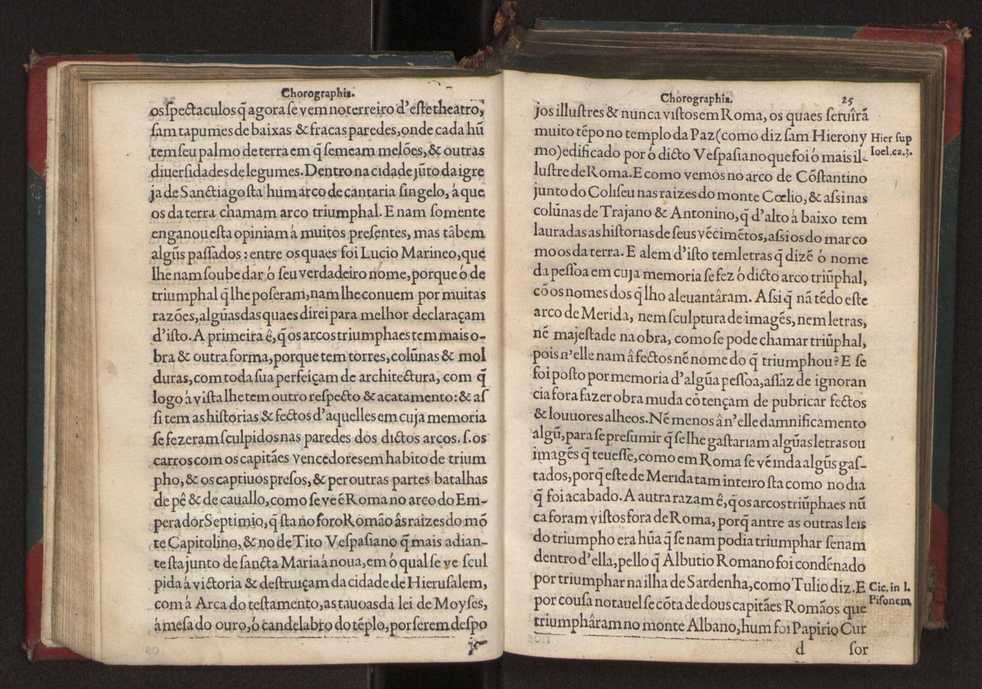 Chorographia.
os spectaculos q̃ agora se vem no terreiro d'este theatro,
sam tapumes de baixas & fracas paredes, onde cada hũ
tem seu palmo de terra em q̃ semeam melões, & outras
diuersidades de legumes. Dentro na cidade jũto da igre
ja de Sanctiago sta hum arco de cantaria singelo, à que
os da terra chamam arco triumphal. E nam somente
enganou esta opiniam à muitos presentes, mas tãbem
algũs passados: entre os quaes foi Lucio Marineo, que
lhe nam soube dar ó seu verdadeiro nome, porque ó de
triumphal q̃ lhe poseram, nam lhe conuem por muitas
razões, algũas das quaes direi para melhor declaraçam
d'isto. A primeira ê, q̃ os arcos triumphaes tem mais o-
bra & outra forma, porque tem torres, colũnas & mol
duras, com toda sua perfeiçam de architectura, com q̃
logo á vista lhe tem outro respecto & acatamento: & as
si tem as historias & fectos d'aquelles em cuja memoria
se fezeram sculpidos nas paredes dos dictos arcos. s. os
carros com os capitães vencedores em habito de trium
pho, & os captiuos presos, & per outras partes batalhas
de pê & de cauallo, como se ve ẽ Roma no arco do Em-
perador Septimio, q̃ sta no foro Romão âs raizes do mõ
te Capitolino, & no de Tito Vespasiano q̃ mais adian-
te sta junto de sancta Maria à noua, em ó qual se ve scul
pida á victoria & destruiçam da cidade de Hierusalem,
com á Arca do testamento, as tauoas da lei de Moyses,
á mesa do ouro, ó candelabro do tẽplo, por serem despo
jos
Chorographia. 25
jos illustres & nunca vistos em Roma, os quaes seruîrã
muito tẽpo no templo da Paz (como diz sam Hierony
mo) edificado por ó dicto Vespasiano que foi ó mais il-
lustre de Roma. E como vemos no arco de Cõstantino
junto do Coliseu nas raizes do monte Cœlio, & assi nas
colũnas de Trajano & Antonino, q̃ d'alto à baixo tem
lauradas as historias de seus vẽcimẽtos, assi os do marco
mo os da terra. E alem d'isto tem letras q̃ dizẽ ó nome
da pessoa em cuja memoria se fez ó dicto arco triũphal,
cõ os nomes dos q̃ lho aleuantâram. Assi q̃ nã tẽdo este
arco de Merida, nem sculptura de imagẽs, nem letras,
nẽ majestade na obra, como se pode chamar triũphal,
pois n'elle nam â fectos nẽ nome do q̃ triumphou? E se
foi posto por memoria d'algũa pessoa, assaz de ignoran
cia fora fazer obra muda cõ tençam de pubricar fectos
& louuores alheos. Nẽ menos â n'elle damnificamento
algũ, para se presumir q̃ se lhe gastariam algũas letras ou
imagẽs q̃ teuesse, como em Roma se vẽ inda algũs gas-
tados, porq̃ este de Merida tam inteiro sta como no dia
q̃ foi acabado. A autra razam ê, q̃ os arcos triũphaes nũ
ca foram vistos fora de Roma, porq̃ antre as outras leis
do triumpho era hũa q̃ se nam podia triumphar senam
dentro d'ella, pello q̃ Albutio Romano foi condẽnado
por triumphar na ilha de Sardenha, como Tulio diz. E
por cousa notauel se cõta de dous capitães Romãos que
triumphâram no monte Albano, hum foi Papirio Cur
d sor
Hier sup
Ioel. ca. 3.
Cic. in l.
Pisonem